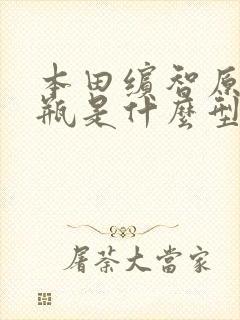 本田缤智原
瓶是什麼型
屠荼大當家